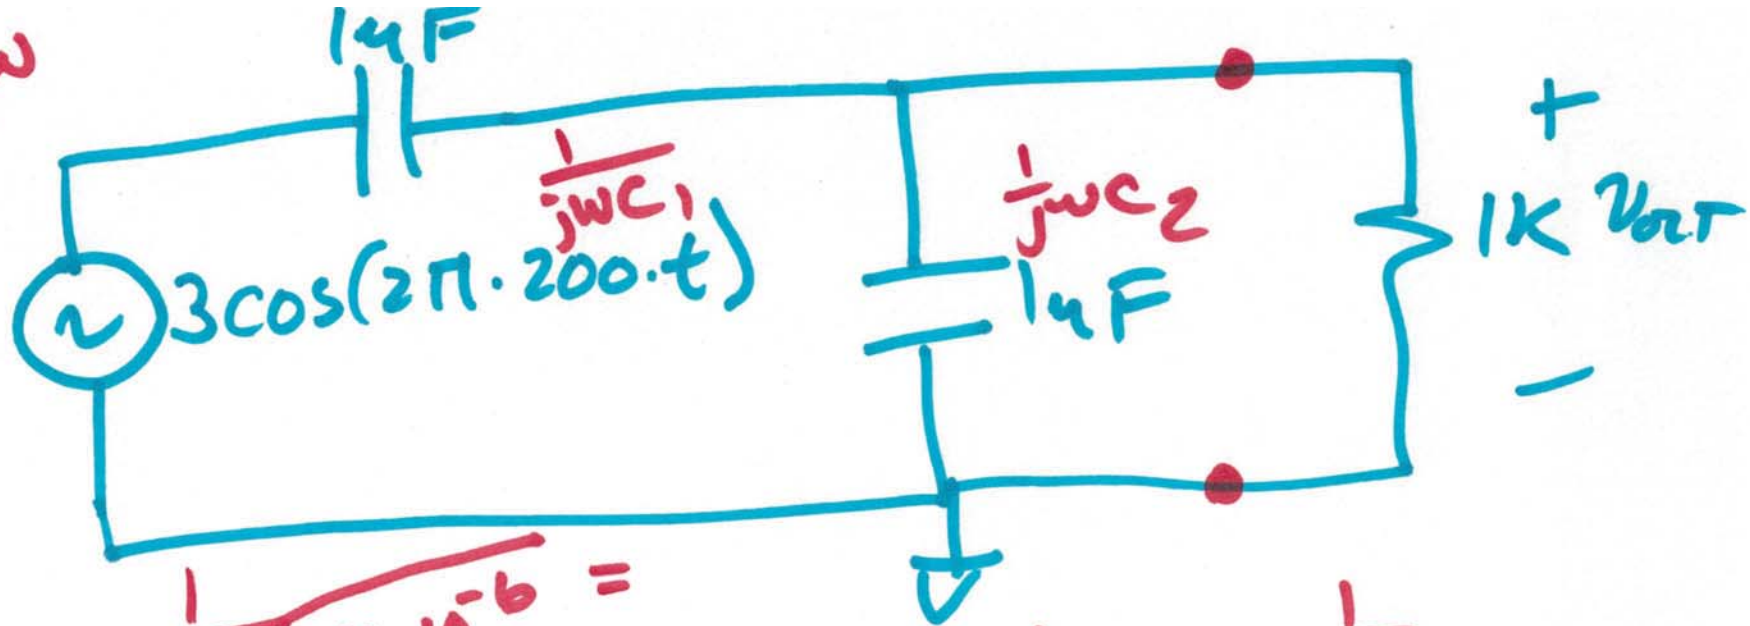 1μF
1/jωC1
3cos(2π·200·t)
1/jωC2
1μF
+
1K Vout
−
1
=
1